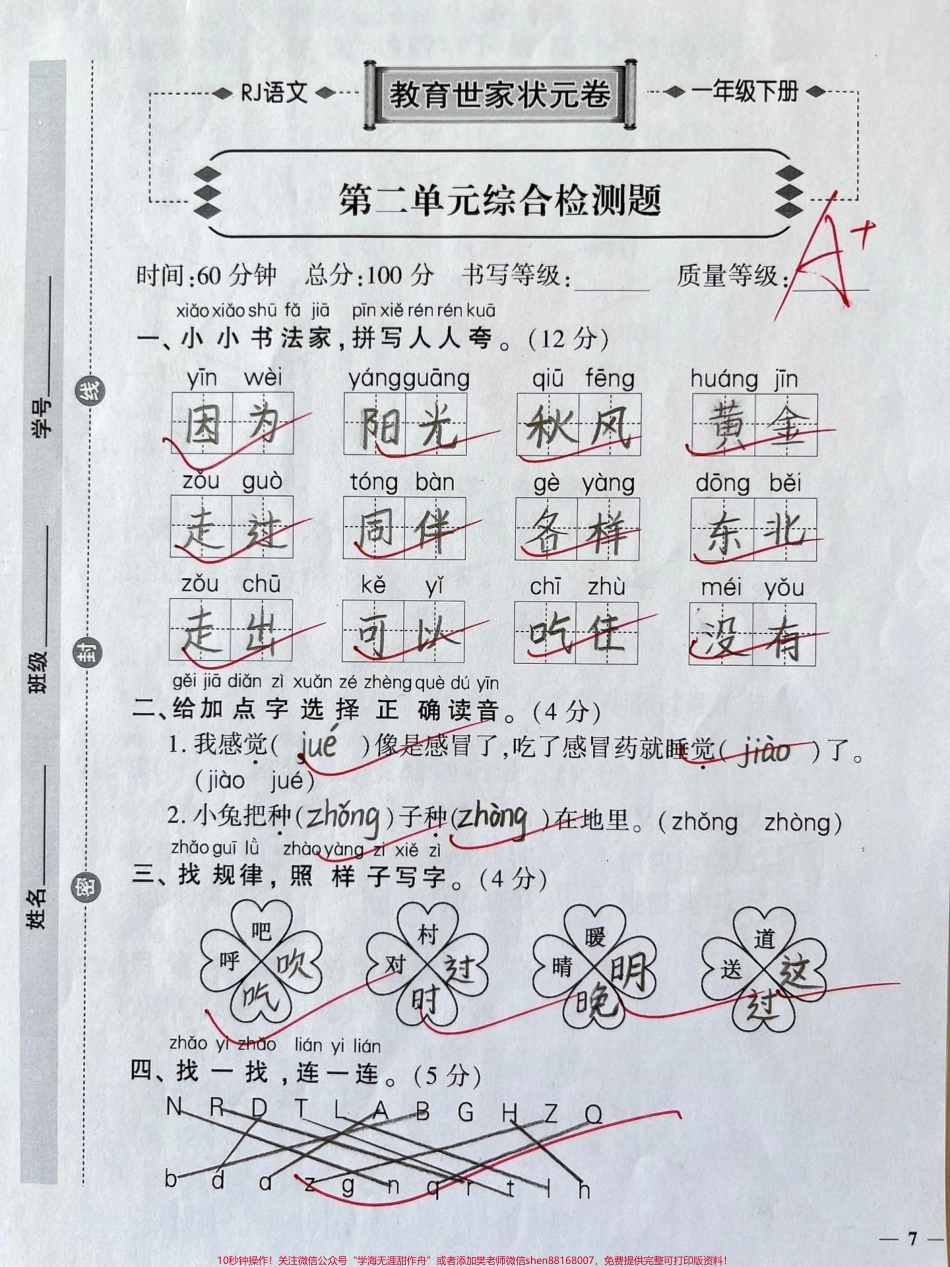 RJ语文 教育世家状元卷 一年级下册
第二单元综合检测题
时间:60分钟 总分:100分 书写等级:______ 质量等级:______ A+
xiǎo xiǎo shū fǎ jiā pīn xiě rén rén kuā
一、小小书法家,拼写人人夸。(12分)
yīn wèi yáng guāng qiū fēng huáng jīn
因为 阳光 秋风 黄金
zǒu guò tóng bàn gè yàng dōng běi
走过 同伴 各样 东北
zǒu chū kě yǐ chī zhù méi yǒu
走出 可以 吃住 没有
gěi jiā diǎn zì xuǎn zé zhèng què dú yīn
二、给加点字选择正确读音。(4分)
1. 我感觉( jué )像是感冒了,吃了感冒药就睡觉( jiào )了。
(jiào jué)
2. 小兔把种(zhǒng)子种(zhòng)在地里。(zhǒng zhòng)
zhǎo guī lǜ zhào yàng zi xiě zì
三、找规律,照样子写字。(4分)
吧 村 暖 道
呼 吹 对 过 晴 明 送 这
吃 时 晚 过
zhǎo yi zhǎo lián yi lián
四、找一找,连一连。(5分)
N R D T L A B G H Z Q
b d a z g n q r t l h
学号
班级
姓名
线
封
密
— 7 —
10秒钟操作!关注微信公众号“学海无涯甜作舟”或者添加樊老师微信shen88168007,免费提供完整可打印版资料!